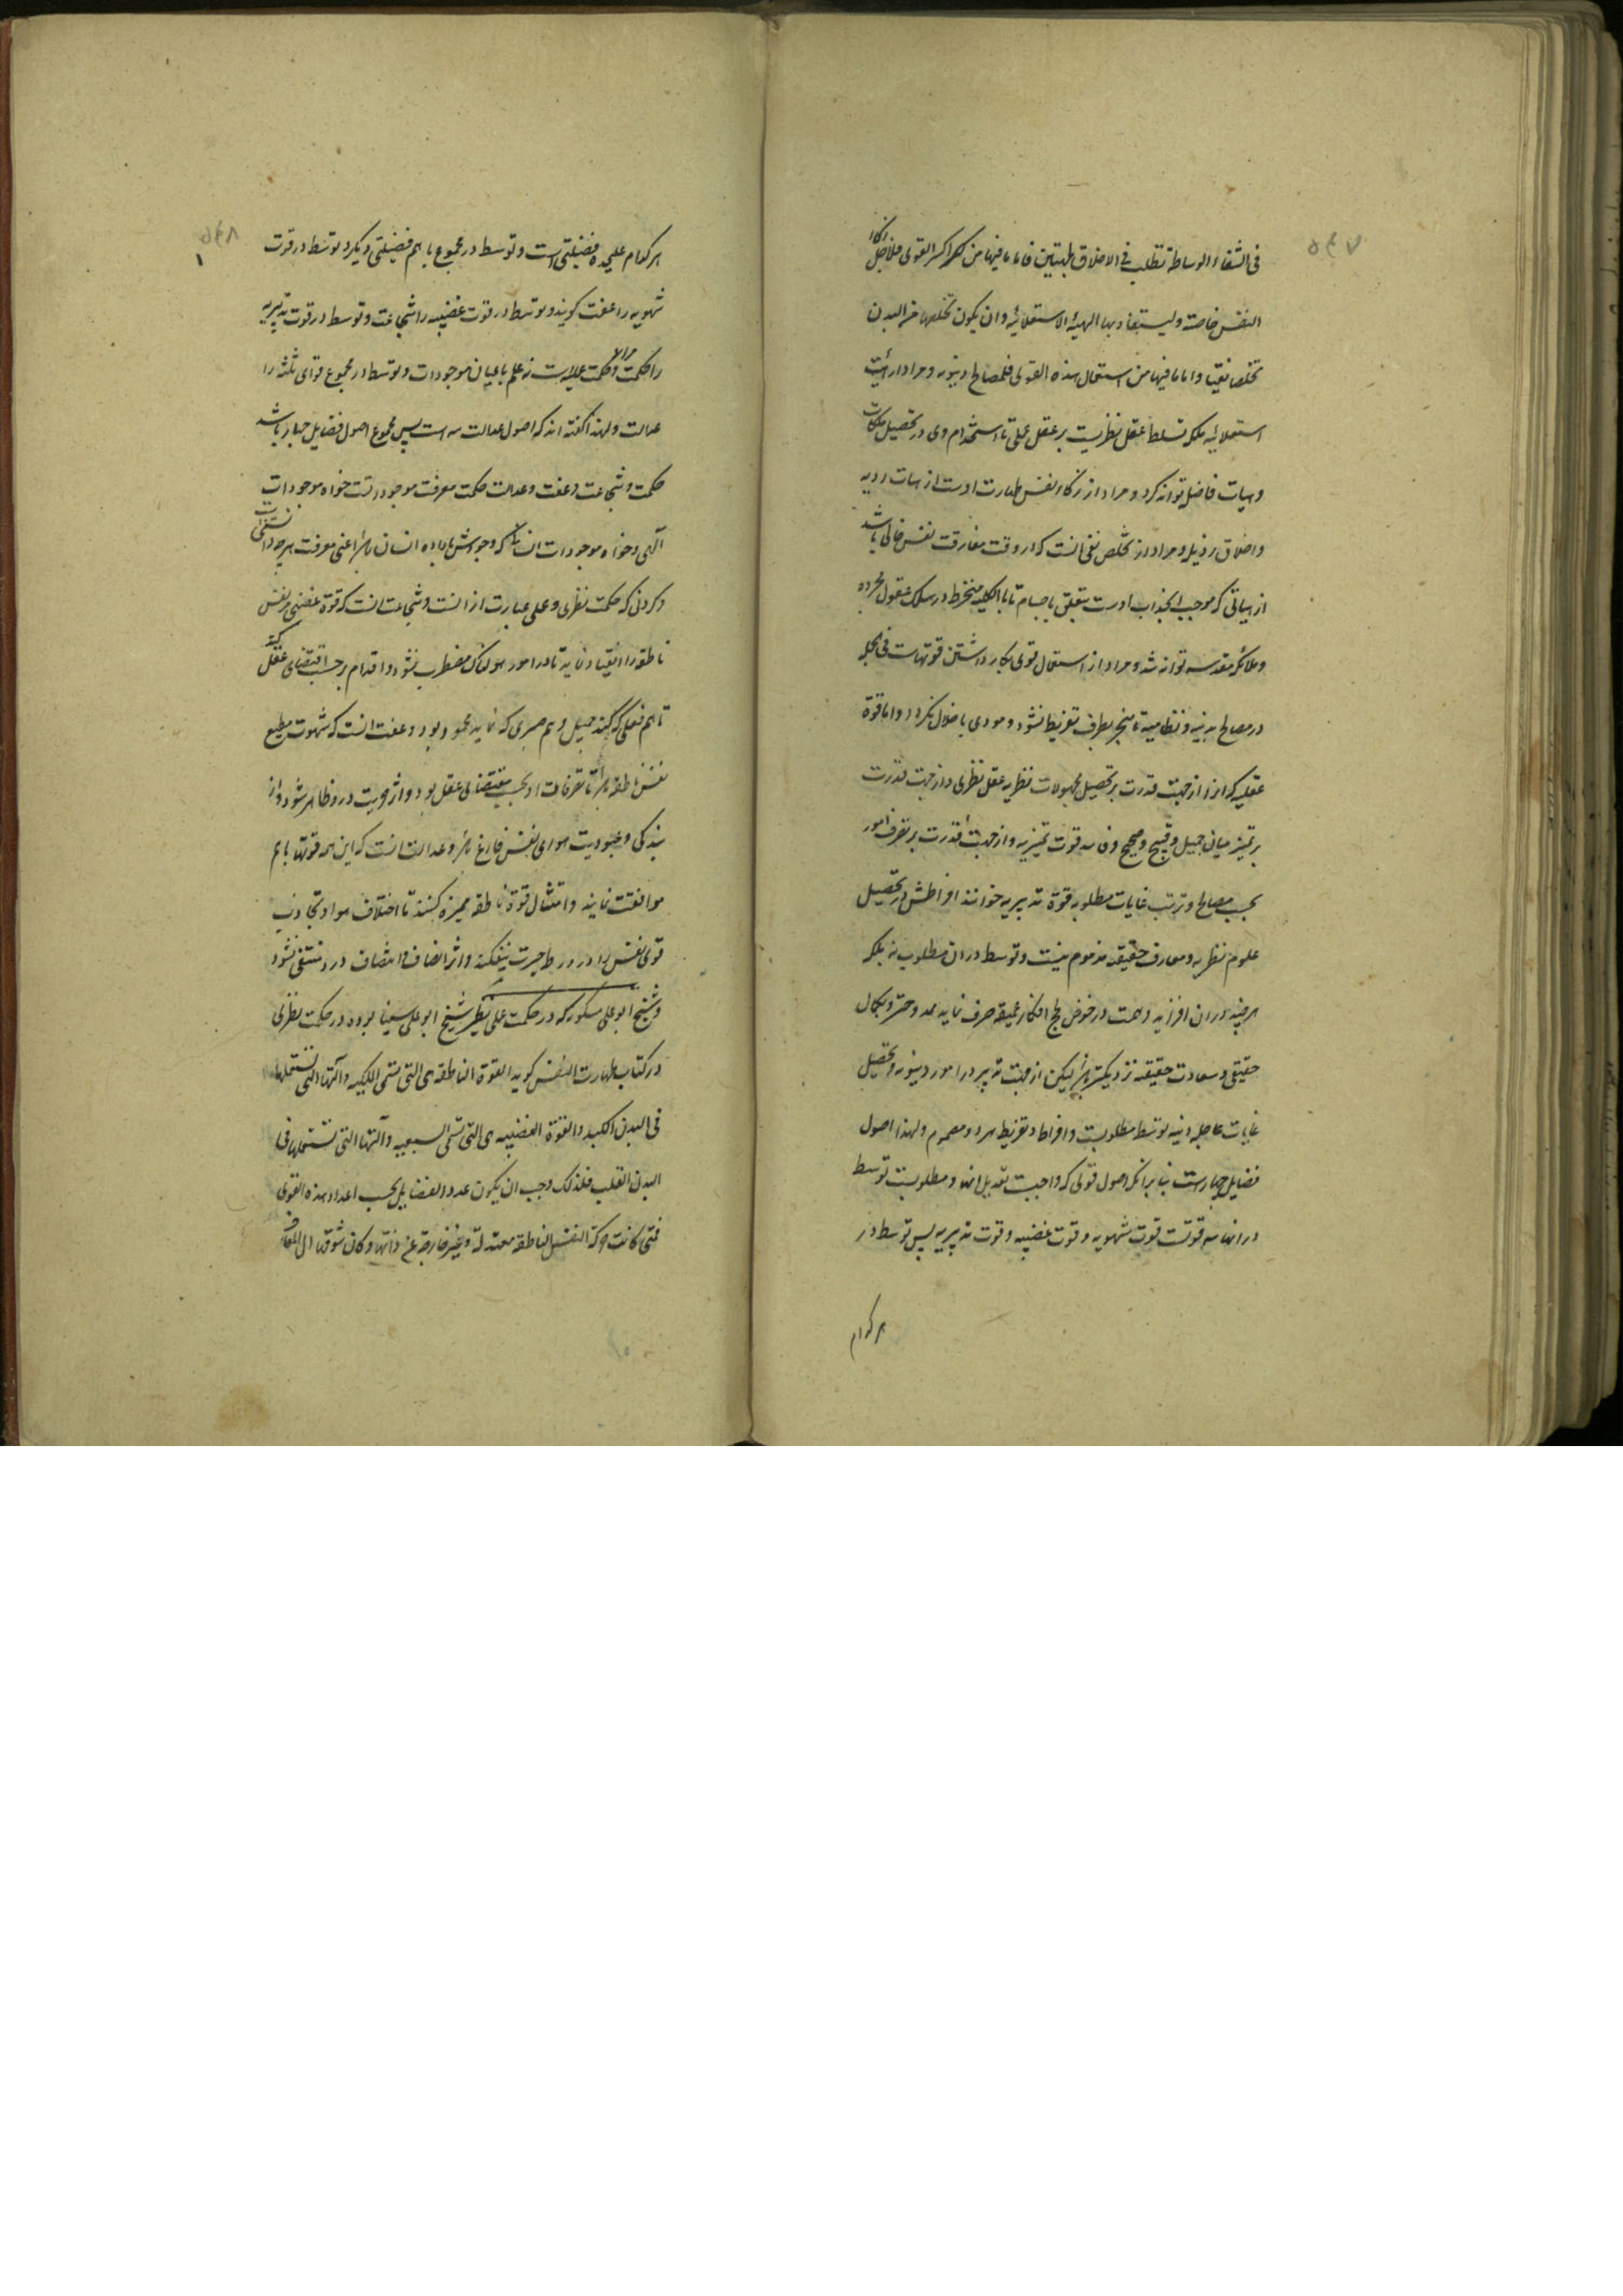 ۵۴۷
فی الشفاء الوساطة تطلب فی الاخلاق لجهتین فاما ما فیها من کسر القوی فلاجل زکاء
النفس خاصة ولیستفاد بها الهیئة الاستعلائیه وان یکون تخلصها من البدن
تخلصا نقیا واما ما فیها من استعمال هذه القوی فلمصالح دنیویه ومراد از هیئت
استعلائیه ملکه تسلط عقل نظریست بر عقل عملی تا استخدام وی در تحصیل ملکات
وهیات فاضله تواند کرد ومراد از زکاء نفس طهارت اوست از هیات ردیه
واخلاق رذیله ومراد از تخلص نقی آنست که در وقت مفارقت نفس خالی باشد
از هیاتی که موجب انجذاب اوست بتعلق باجسام تا بالکلیه منخرط در سلک عقول مجرده
وملائکه مقدسه تواند شد ومراد از استعمال قوی بکار داشتن قوتهاست فی الجمله
در مصالح بدنیه ونظامیه تا منجر بطرف تفریط نشود ومودی باخلال نگردد واما قوة
عقلیه که انرا از جهت قدرت بر تحصیل مجهولات نظریه عقل نظری واز جهت قدرت
بر تمییز میان جمیل وقبیح وصحیح وفاسد قوت تمییزیه واز جهت قدرت بر تصرف امور
بحسب مصالح وترتب غایات مطلوبه قوة تدبیریه خوانند افراطش در تحصیل
علوم نظریه ومعارف حقیقه مذموم نیست وتوسط در ان مطلوب نه بلکه
هر چند در ان افزاید وهمت در خوض لجج افکار عمیقه صرف نماید بمدوحتر وبکمال
حقیقی وسعادت حقیقه نزدیکتر باشد لیکن از جهت تدبیر در امور دنیویه وتحصیل
غایات عاجله دنیه توسط مطلوبست وافراط وتفریط هر دو مذموم ولهذا اصول
فضایل چهارست بنا بر انکه اصول قوی که واجبست تعدیل انها ومطلوبست توسط
در انها سه قوتست قوت شهویه وقوت غضبیه وقوت تدبیریه پس توسط در
هر کدام
۵۴۸
هر کدام علیحده فضیلتی است وتوسط در مجموع با هم فضیلتی دیگر وتوسط در قوت
شهویه را عفت گویند وتوسط در قوت غضبیه را شجاعت وتوسط در قوت تدبیریه
را حکمت ومراد حکمت عملیه است نه علم باعیان موجودات وتوسط در مجموع قوای ثلثه را
عدالت ولهذا گفته اند که اصول عدالت سه است پس مجموع اصول فضایل چهار باشد
حکمت وشجاعت وعفت وعدالت حکمت معرفت موجوداتست خواه موجودات
آلهی وخواه موجودات انسانی که وجودش باراده انسان باشد اعنی معرفت هر چه دانستنی است
وکردنی که حکمت نظری وعملی عبارت از انست وشجاعت انست که قوة غضبی مر نفس
ناطقه را انقیاد نماید تا در امور هولناک مضطرب نشود واقدام بر حسب اقتضای عقل کند
تا هم فعلی که کند جمیل وهم صبری که نماید محمود بود وعفت انست که شهوت مطیع
نفس ناطقه باشد تا تصرفات او بحسب مقتضای عقل بود واثر حریت در وظاهر شود واز
بندگی وعبودیت هوای نفس فارغ باشد وعدالت انست که این همه قوتها با هم
موافقت نمایند وامتثال قوة ناطقه ممیزه کنند تا اختلاف هوا وتجاذب
قوی نفس را در ورطه حیرت نیفکند واثر انصاف وانتصاف در و منتفی نشود
وشیخ ابو علی مسکویه که در حکمت عملی نظیر شیخ ابو علی سینا بوده در حکمت نظری
در کتاب طهارت النفس گوید القوة الناطقه هی التی تسمی الملکیه وآلتها التی تستعملها
فی البدن الکبد والقوة الغضبیه هی التی تسمی السبعیه وآلتها التی تستعملها فی
البدن القلب فلذلک وجب ان یکون عدد الفضایل بحسب اعداد هذه القوی
فمتی کانت حرکة النفس الناطقه معتدلة وغیر خارجة عن ذاتها وکان شوقها الی المعارف